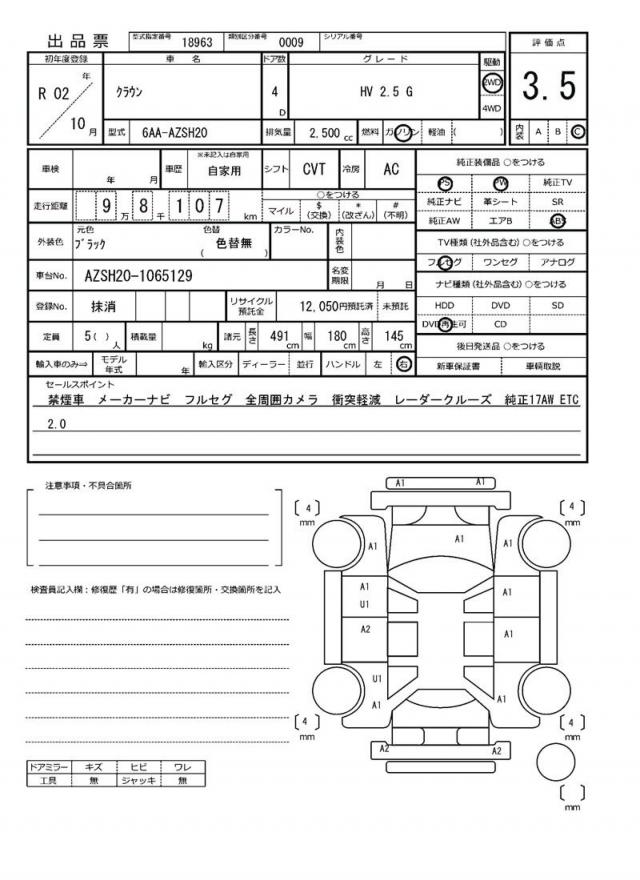 出品票 型式指定番号 18963 類別区分番号 0009 シリアル番号
初年度登録 車名 ドア数 グレード 駆動 評価点
R 02 年 10 月 クラウン 4 D HV 2.5 G 2WD 4WD 3.5
型式 6AA-AZSH20 排気量 2,500 cc 燃料 ガソリン 軽油 ( ) 内装 A B C
車検 年 月 車歴 ※未記入は自家用 自家用 シフト CVT 冷房 AC
走行距離 9 万 8 千 1 0 7 km ○をつける
マイル $ (交換) * (改ざん) # (不明)
外装色 元色 ブラック 色替 ( 色替無 ) カラーNo. 内装色
車台No. AZSH20-1065129 名変期限 月 日
登録No. 抹消 リサイクル預託金 12,050円預託済 未預託
定員 5( ) 人 積載量 kg 諸元 長さ 491 cm 幅 180 cm 高さ 145 cm
輸入車のみ⇒ モデル年式 年 輸入区分 ディーラー 並行 ハンドル 左 右
純正装備品 ○をつける
PS PW 純正TV
純正ナビ 革シート SR
純正AW エアB ABS
TV種類(社外品含む)○をつける
フルセグ ワンセグ アナログ
ナビ種類(社外品含む)○をつける
HDD DVD SD
DVD再生可 CD
後日発送品 ○をつける
新車保証書 車輌取説
セールスポイント
禁煙車 メーカーナビ フルセグ 全周囲カメラ 衝突軽減 レーダークルーズ 純正17AW ETC
2.0
注意事項・不具合箇所
検査員記入欄：修復歴「有」の場合は修復箇所・交換箇所を記入
ドアミラー キズ ヒビ ワレ
工具 無 ジャッキ 無
A1 A1
[ 4 ] mm [ 4 ] mm
A1 A1 A1
A1 A1
U1
A2 A1
U1
A1 A1
[ 4 ] mm [ 4 ] mm
A2 A2
[ ] mm